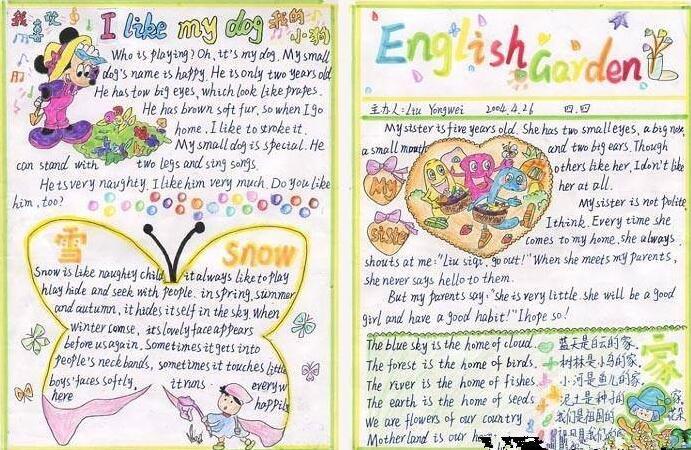 我喜欢 I like my dog 我的小狗
Who is playing? Oh, it's my dog. My small
dog's name is happy. He is only two years old
He has tow big eyes, which look like prapes.
He has brown soft fur, so when I go
home, I like to stroke it.
My small dog is special. He
can stand with two legs and sing songs.
He is very naughty. I like him very much. Do you like
him, too?
雪 snow
Snow is like naughty child it always like to play
hlay hide and seek with people. in spring, summer
and autumn, it hides itself in the sky. When
winter comse, its lovely face appears
before us again. Sometimes it gets into
people's neck bands, sometimes it touches little
boys' faces softly, it runs everyw
here happily
English Garden
主办人: Liu Yongwei 2004.4.26 四.四
My sister is five years old. She has two small eyes, a big nose,
a small mouth and two big ears. Though
others like her, I don't like
her at all.
My sister
My sister is not polite
I think. Every time she
comes to my home, she always
shouts at me: "Liu siqi, go out!" When she meets my parents,
she never says hello to them.
But my parents say: "she is very little. she will be a good
girl and have a good habit!" I hope so!
家
The blue sky is the home of cloud. 蓝天是白云的家.
The forest is the home of birds. 树林是小鸟的家.
The river is the home of fishes 小河是鱼儿的家.
The earth is the home of seeds 泥土是种子的家.
We are flowers of our country 我们是祖国的花朵
Motherland is our 祖国是我们的